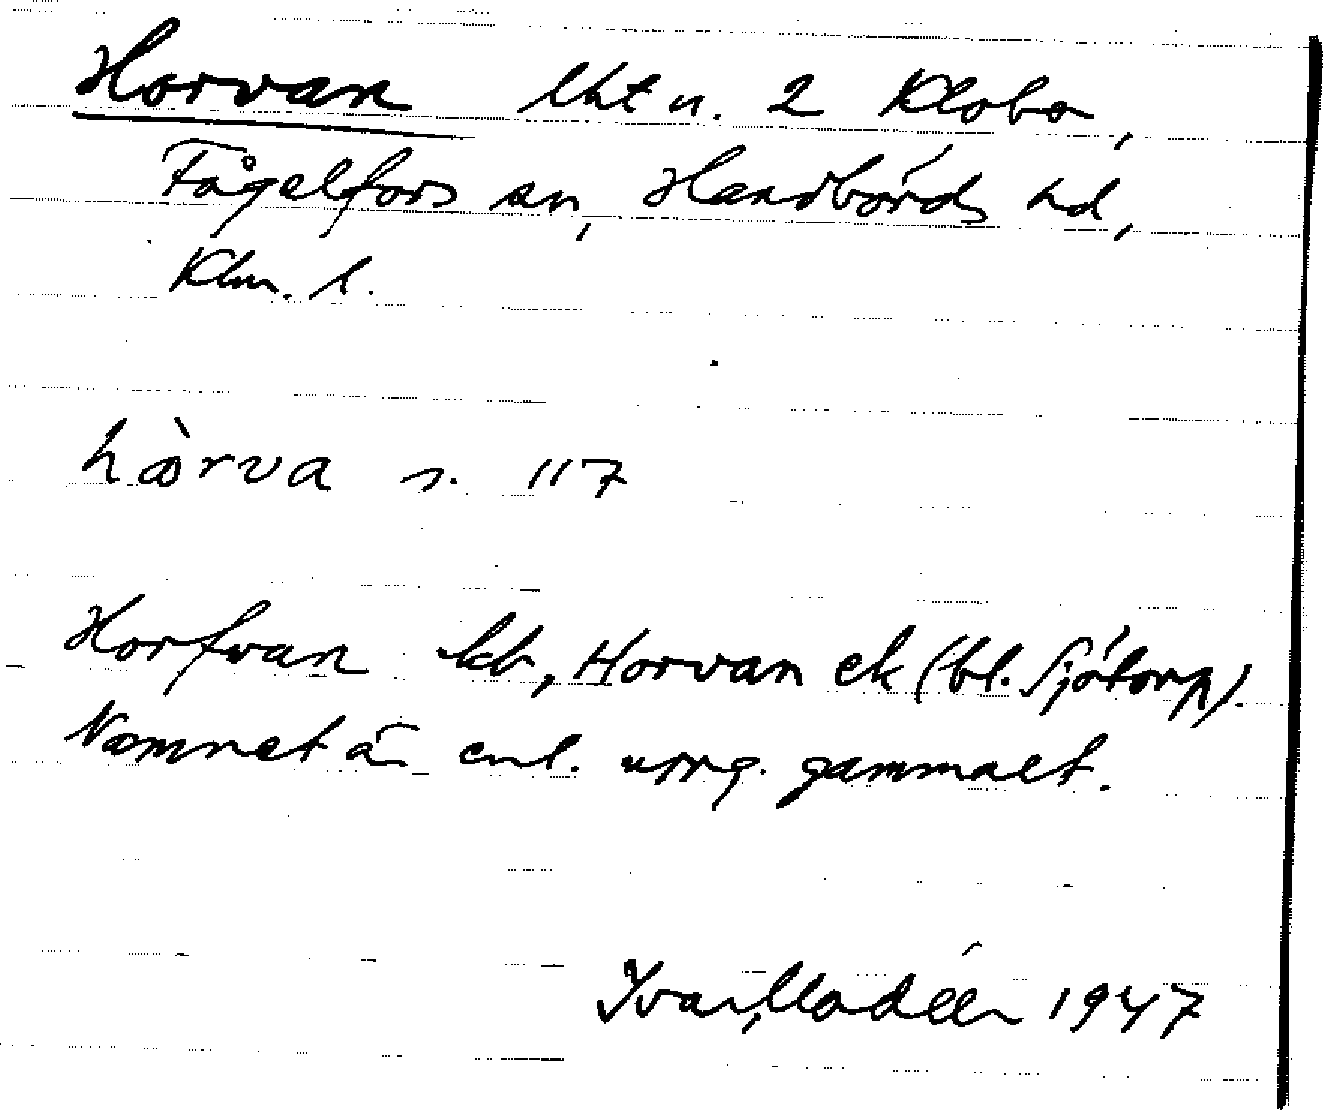 Horvan lht u. 2 Klobo,
Fågelfors sn, Handbörds hd,
Klm. l.
hàrva s. 117
Horfvan kb, Horvan ek (bl. Sjötorp).
Namnet är enl. uppg. gammalt.
Ivar Modéer 1947